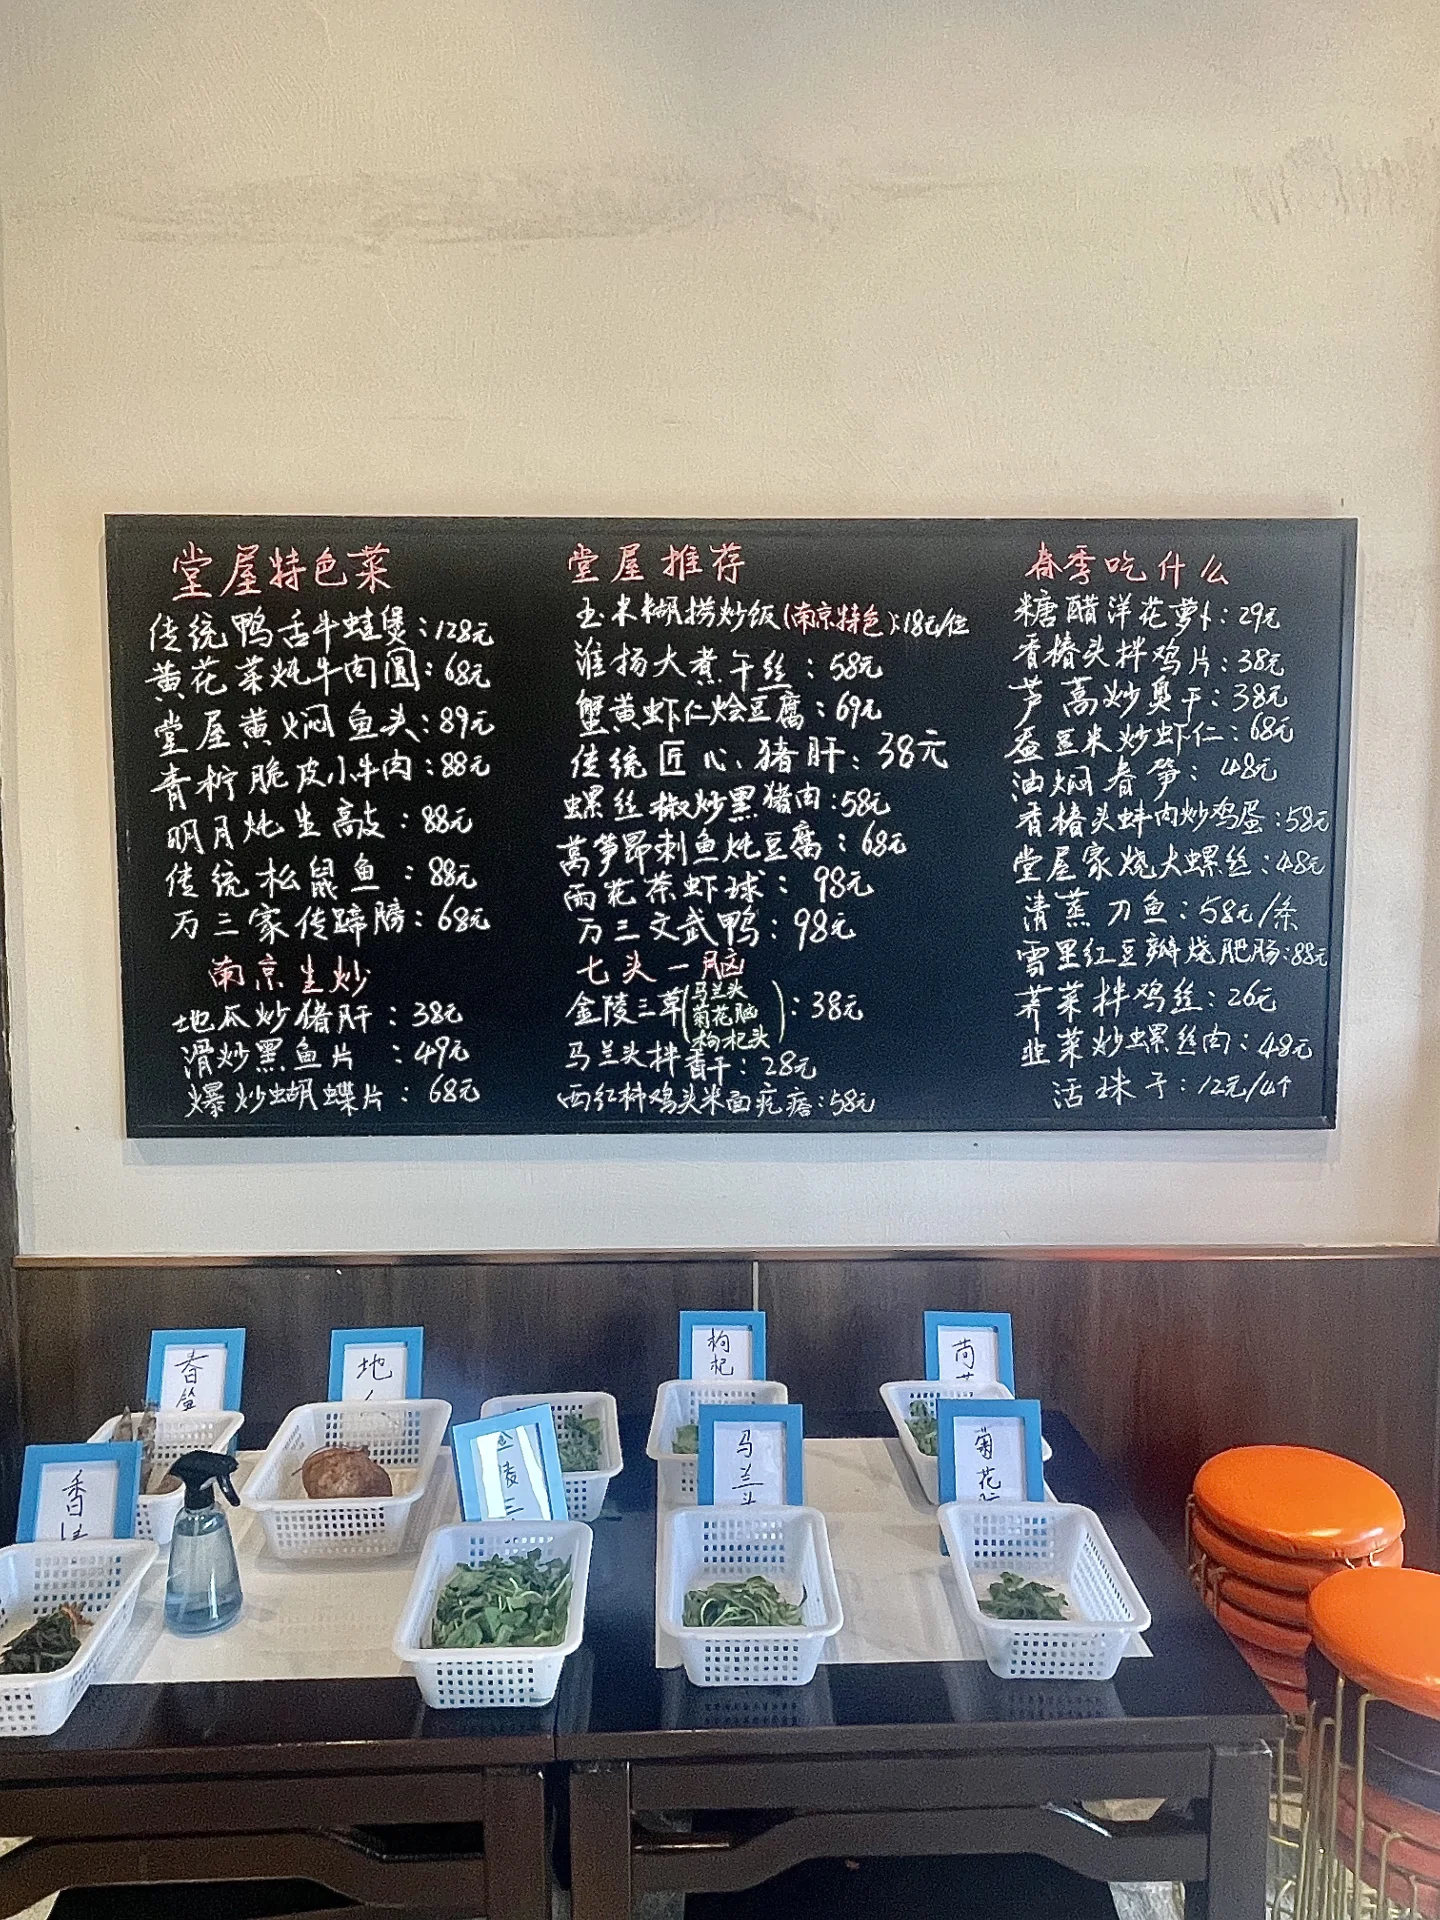 堂屋特色菜
传统鸭舌牛蛙煲:128元
黄花菜炖牛肉圆:68元
堂屋黄焖鱼头:89元
青柠脆皮小牛肉:88元
明月炖生敲:88元
传统松鼠鱼:88元
万三家传蹄膀:68元
南京生炒
地瓜炒猪肝:38元
滑炒黑鱼片:49元
爆炒蝴蝶片:68元
堂屋推荐
玉米糊捞炒饭(南京特色):18元/位
淮扬大煮干丝:58元
蟹黄虾仁烩豆腐:69元
传统匠心猪肝:38元
螺丝椒炒黑猪肉:58元
莴笋昂刺鱼炖豆腐:68元
雨花茶虾球:98元
万三文武鸭:98元
七头一脑
金陵三草(马兰头 菊花脑 枸杞头):38元
马兰头拌香干:28元
西红柿鸡头米面疙瘩:58元
春季吃什么
糖醋洋花萝卜:29元
香椿头拌鸡片:38元
芦蒿炒臭干:38元
蚕豆米炒虾仁:68元
油焖春笋:48元
香椿头蚌肉炒鸡蛋:58元
堂屋家烧大螺丝:48元
清蒸刀鱼:58元/条
雪里红豆瓣烧肥肠:88元
荠菜拌鸡丝:26元
韭菜炒螺丝肉:48元
活珠子:12元/4个
春笋
地
枸杞
香
金陵三
马兰头
菊花